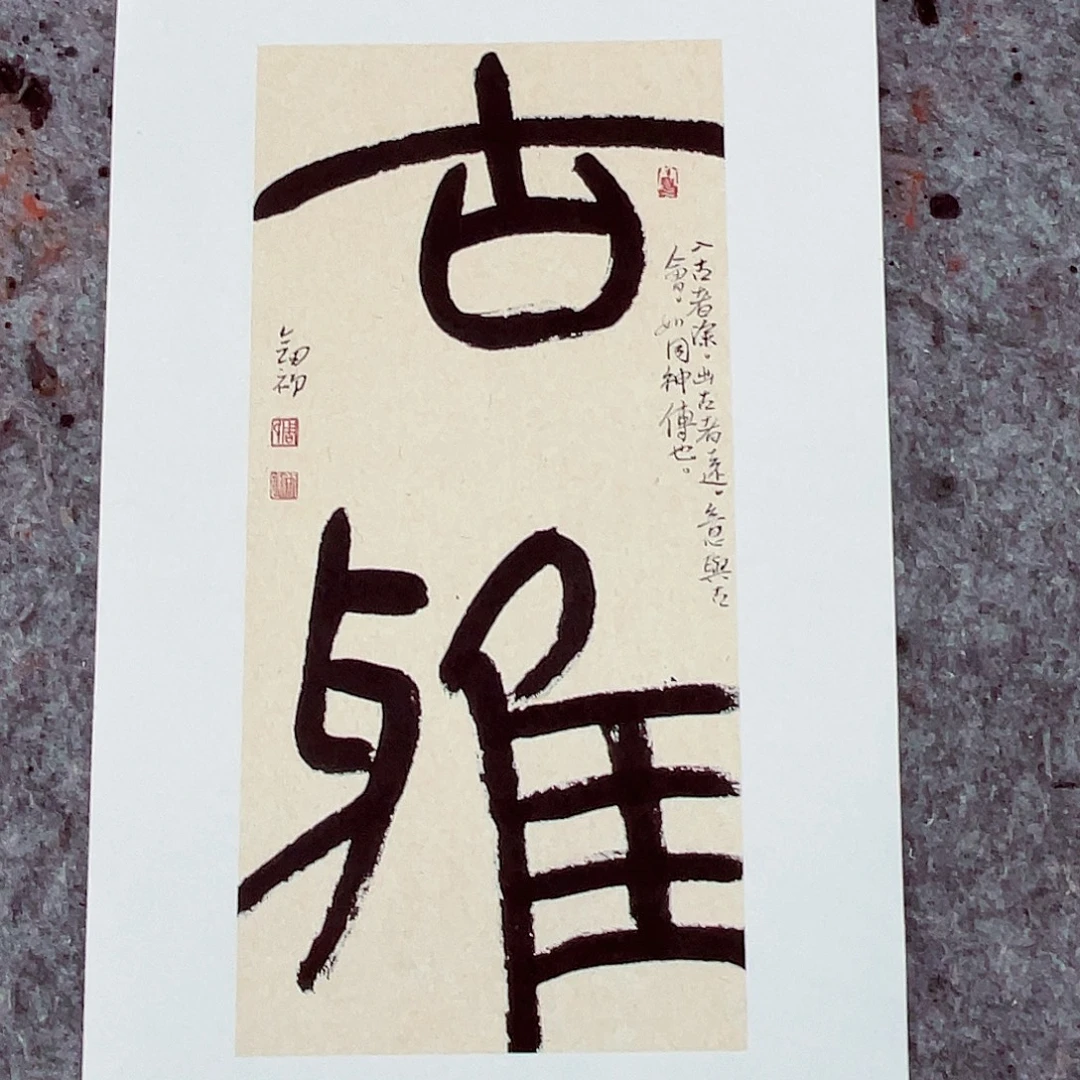 古雅
入古者深。出古者遠。意與古
會。如同神傳也。